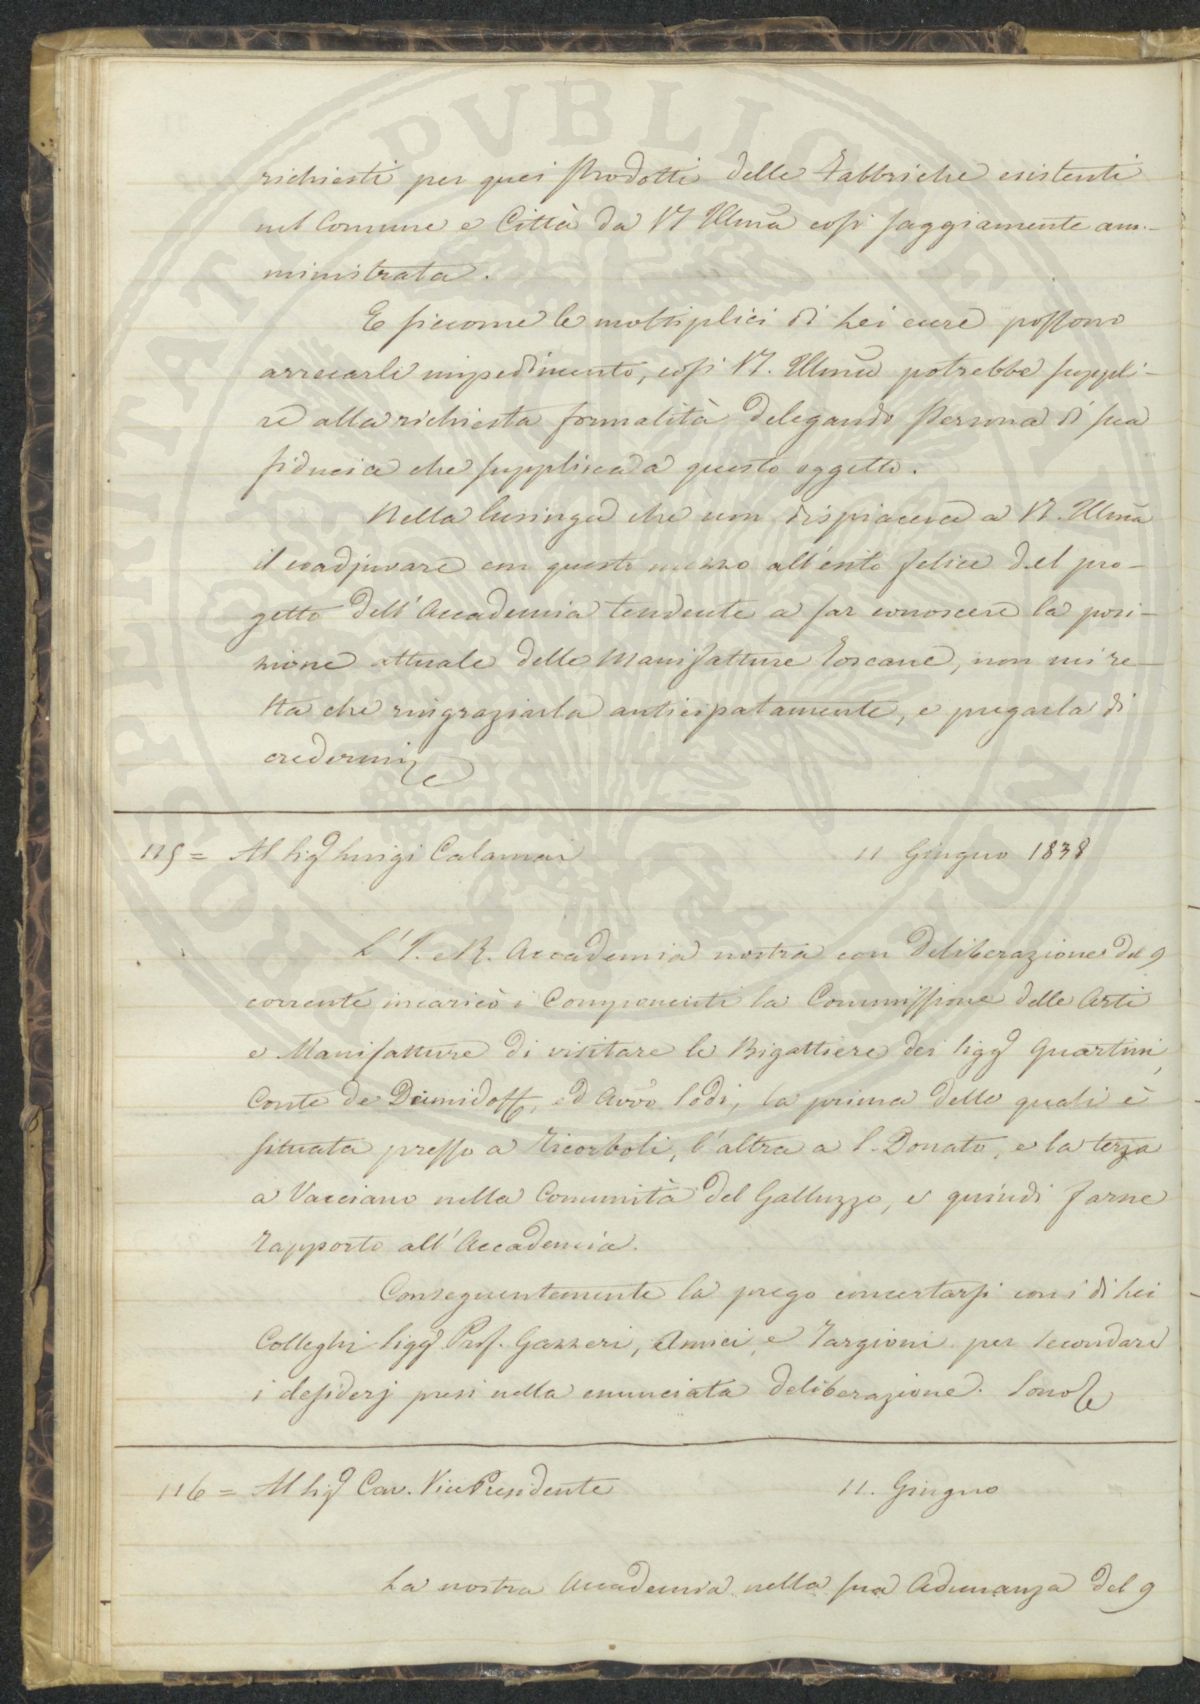 richiesti per quei Prodotti delle Fabbriche esistenti
nel Comune e Città da VS Illma così saggiamente am-
ministrata.
E siccome le moltiplici di Lei cure possono
arrecarle impedimento, così VS. Illma potrebbe suppli-
re alla richiesta formalità delegando Persona di sua
fiducia che supplisca a questo oggetto.
Nella lusinga che non dispiacerà a VS. Illma
il coadjuvare con questo mezzo all'esito felice del pro-
getto dell'Accademia tendente a far conoscere la posi-
zione attuale delle Manifatture Toscane, non mi re-
sta che ringraziarla anticipatamente, e pregarla di
credermi &c
115 = Al Sigr Luigi Calamai 11 Giugno 1838
L'I. e R. Accademia nostra con deliberazione del 9
corrente incaricò i Componenti la Commissione delle Arti
e Manifatture di visitare le Bigattiere dei Sigg Quartini,
Conte de Demidoff, ed Avvo Lodi, la prima delle quali è
situata presso a Ricorboli, l'altra a S. Donato, e la terza
a Vacciano nella Comunità del Galluzzo, e quindi farne
rapporto all'Accademia.
Conseguentemente la prego concertarsi con i di Lei
Colleghi Sigg Prof. Gazzeri, Amici, e Targioni per secondare
i desiderj presi nella enunciata deliberazione. Sono &c
116 = Al Sigr Cav. Vice Presidente 11. Giugno
La nostra Accademia nella sua Adunanza del 9